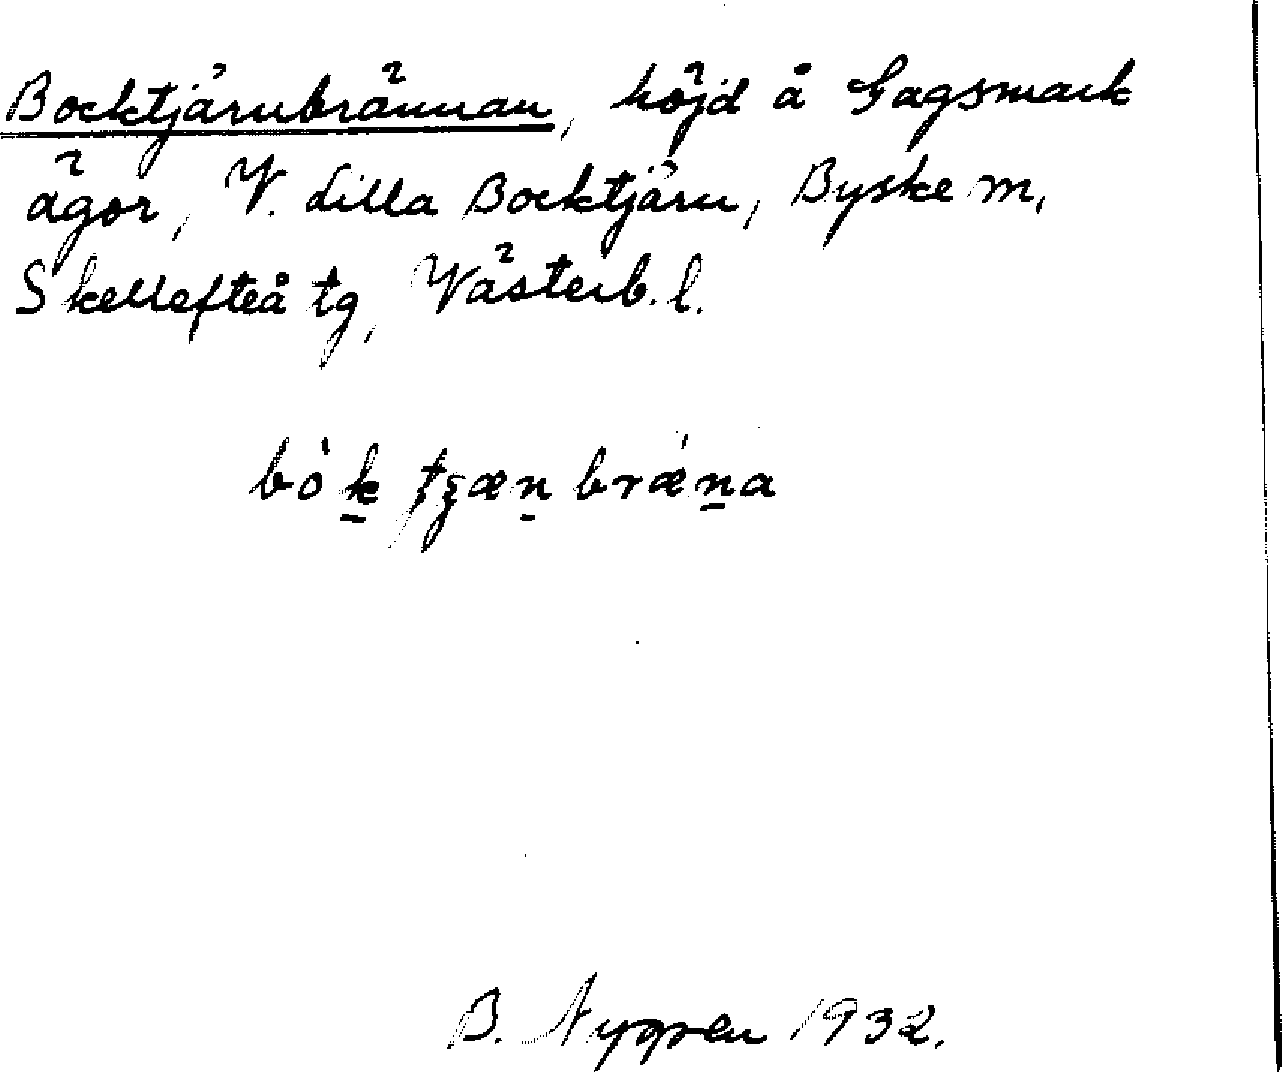 Bocktjärnbrännan, höjd å Gagsmark
ägor, V. Lilla Bocktjärn, Byske sn,
Skellefteå tg, Västerb. l.
bò k̲ tʒæn̲ brǽn̲a
B. Nygren 1932.